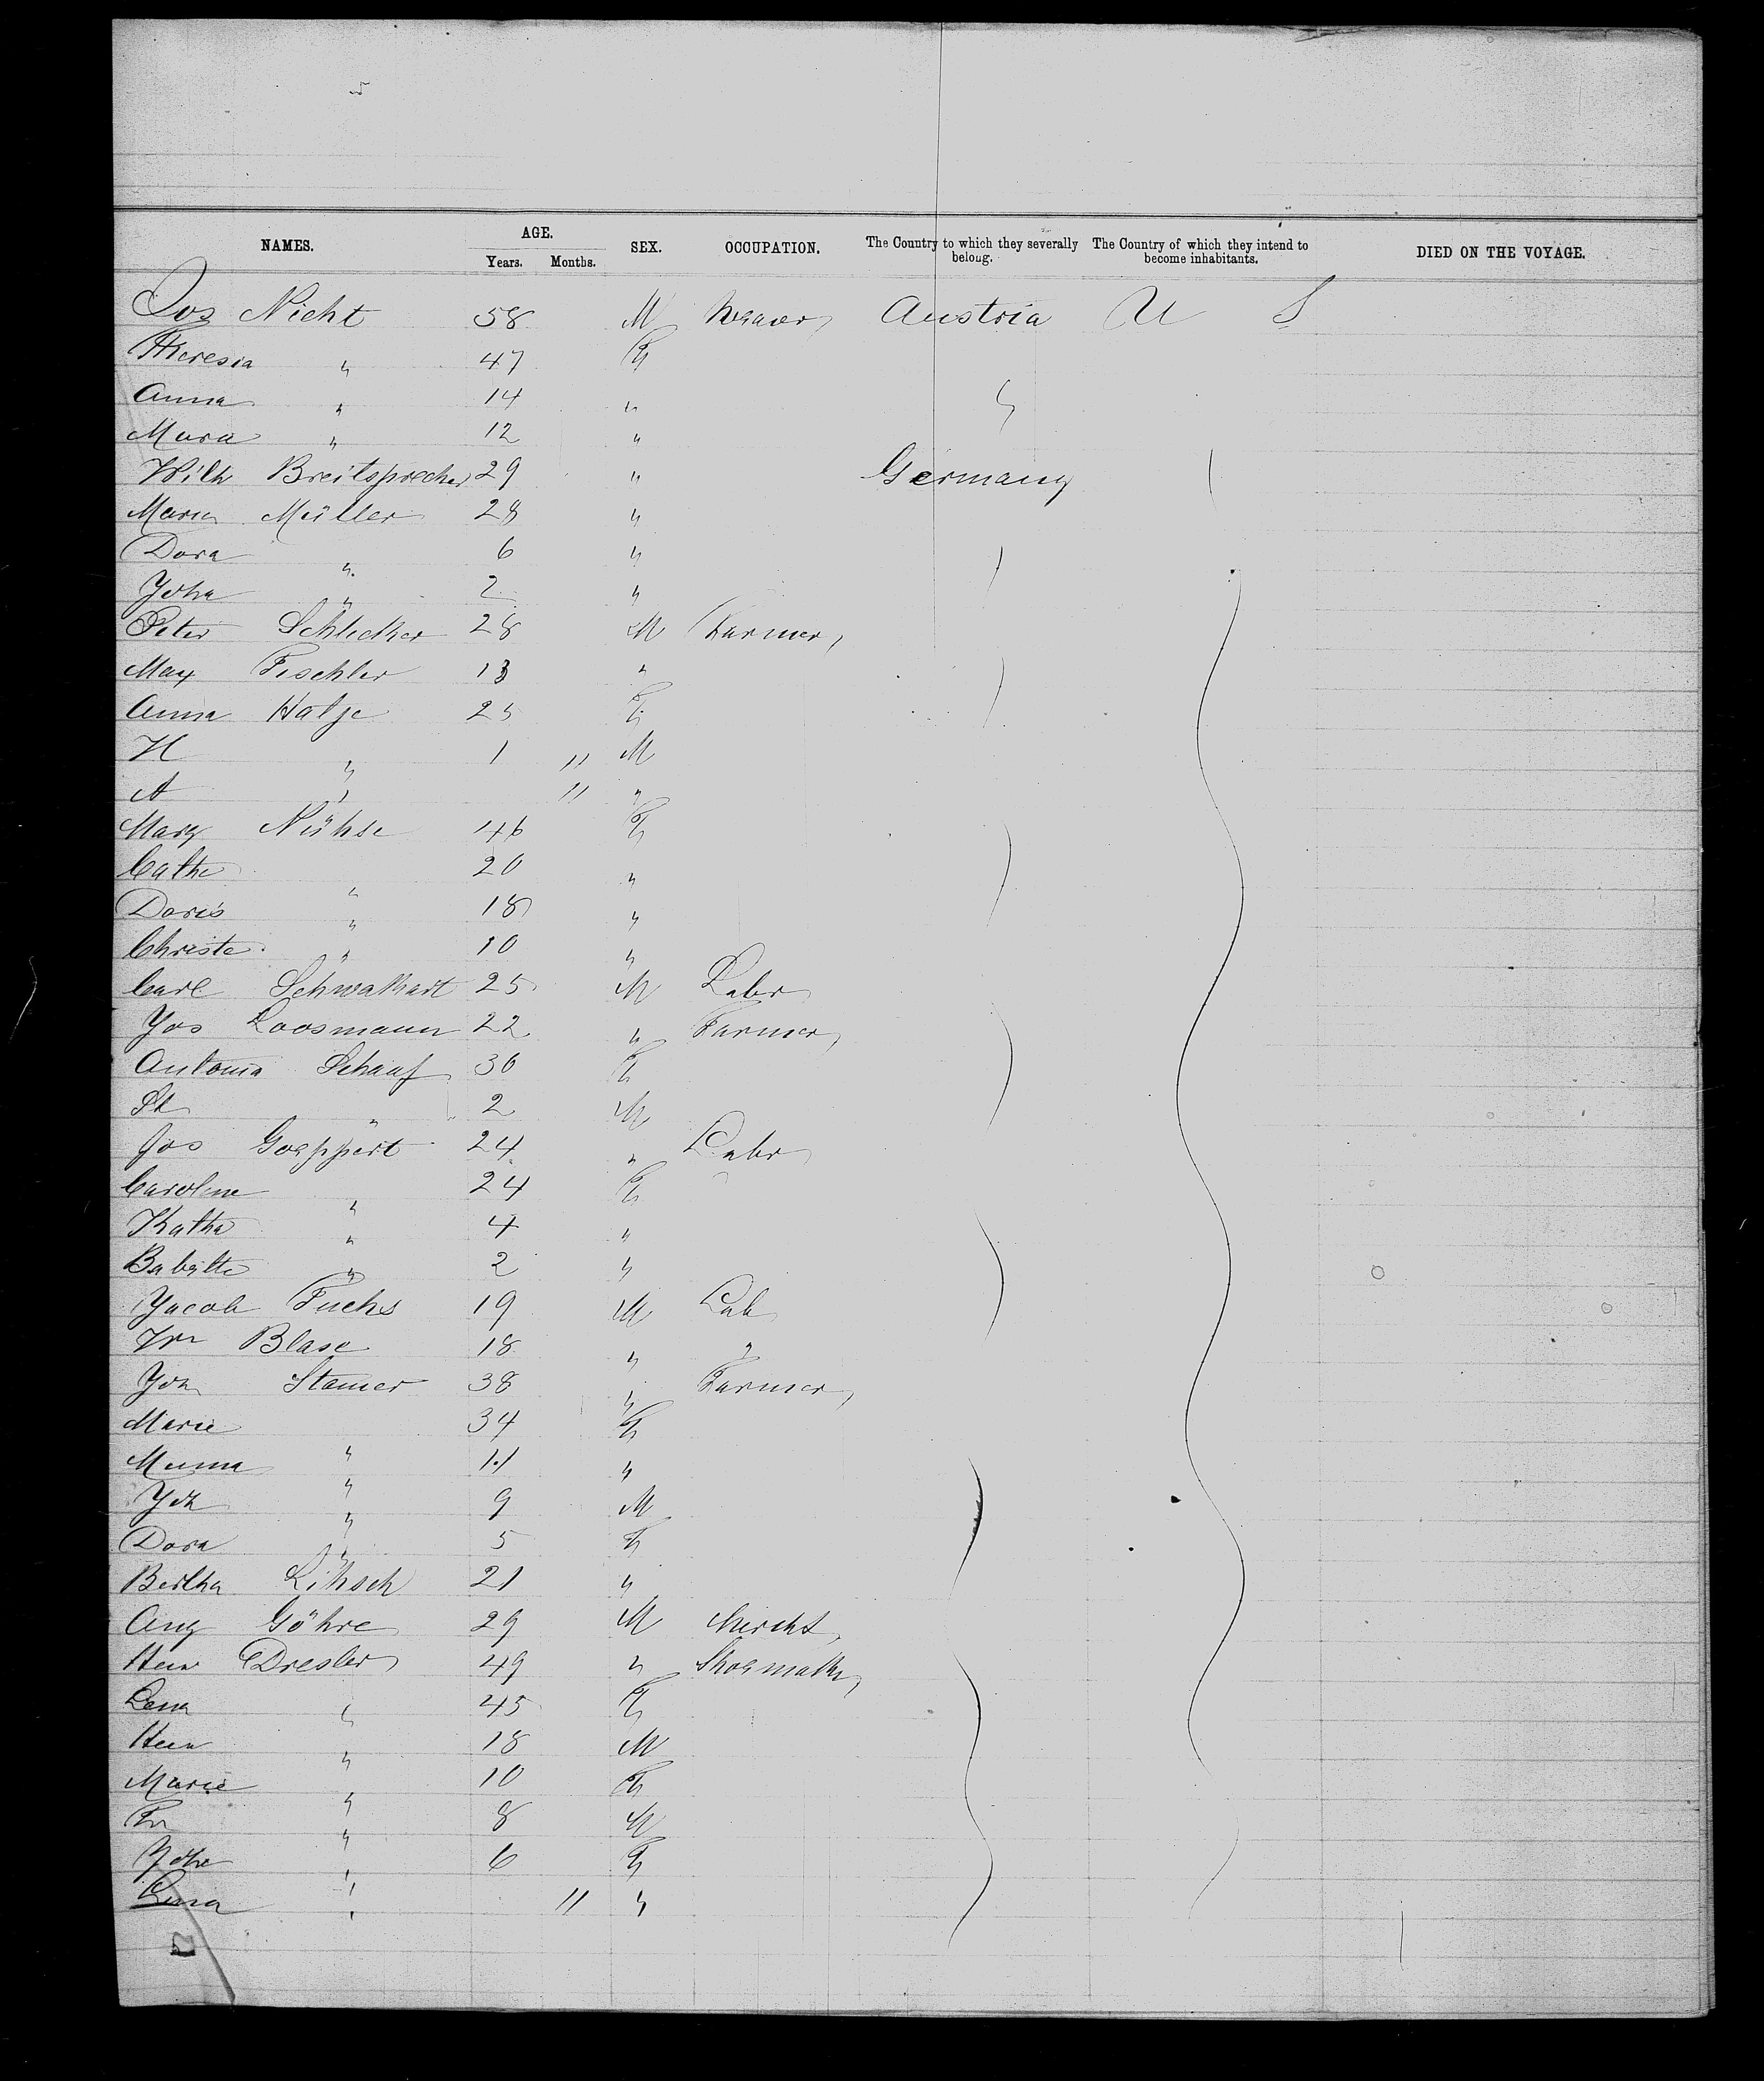 NAMES. AGE. Years. Months. SEX. OCCUPATION. The Country to which they severally belong. The Country of which they intend to become inhabitants. DIED ON THE VOYAGE.
Jos Nicht 58 M Weaver Austria U S
Theresia " 47 F
Anna " 14 " "
Mara " 12 "
Wilh Breitsprecher 29 " Germany
Maria Müller 28 "
Dora " 6 "
Joha " 2 "
Peter Schlicker 28 M Farmer
Max Fischler 13 "
Anna Hatje 25 F
H " 1 11 M
A " 11 "
Marg Nühse 46 F
Cathe " 20 "
Doris " 18 "
Christe " 10 "
Carl Schwalhart 25 M Labr
Jos Loosmann 22 " Farmer
Antonia Schaaf 30 F
" 2 M
Jos Goeppert 24 " Labr
Caroline " 24 F
Katha " 4 "
Babette " 2 "
Jacob Fuchs 19 M Lab
Wm Blase 18 " "
Joh Stamer 38 " Farmer
Marie " 34 F
" 11 "
Joh " 9 M
Dora " 5 F
Bertha Lihsch 21 "
Aug Göhre 29 M Mercht
Hein Dresler 49 " Shoemaker
Lena " 45 F
Hein " 18 M
Marie " 10 F
Fr " 8 M
Johe " 6 F
Lena " 11 "